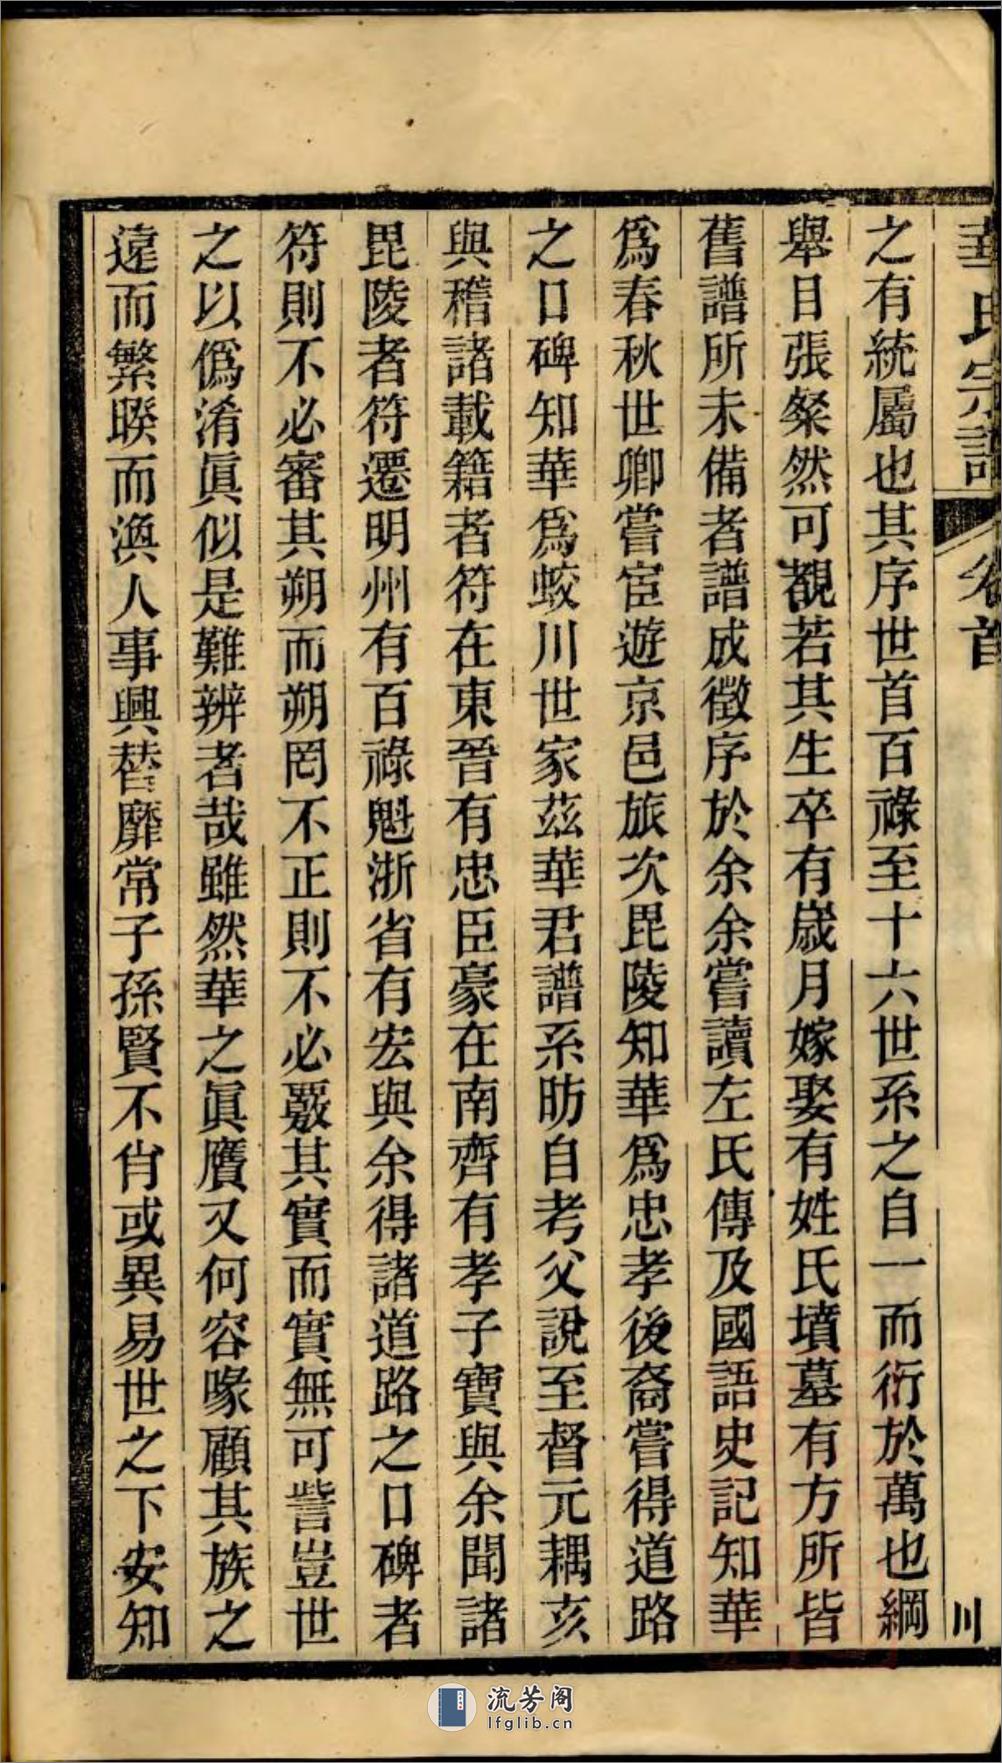 華氏宗譜 卷首 川
之有統屬也其序世首百祿至十六世系之自一而衍於萬也綱
舉目張粲然可覩若其生卒有歲月嫁娶有姓氏墳墓有方所皆
舊譜所未備者譜成徵序於余余嘗讀左氏傳及國語史記知華
爲春秋世卿嘗宦遊京邑旅次毘陵知華爲忠孝後裔嘗得道路
之口碑知華爲蛟川世家茲華君譜系昉自考父說至督元耦亥
與稽諸載籍者符在東晉有忠臣豪在南齊有孝子寶與余聞諸
毘陵者符遷明州有百祿魁浙省有宏與余得諸道路之口碑者
符則不必審其朔而朔罔不正則不必覈其實而實無可訾豈世
之以僞淆眞似是難辨者哉雖然華之眞贗又何容喙顧其族之
遠而繁暌而渙人事興替靡常子孫賢不肖或異易世之下安知
流芳阁
lfglib.cn